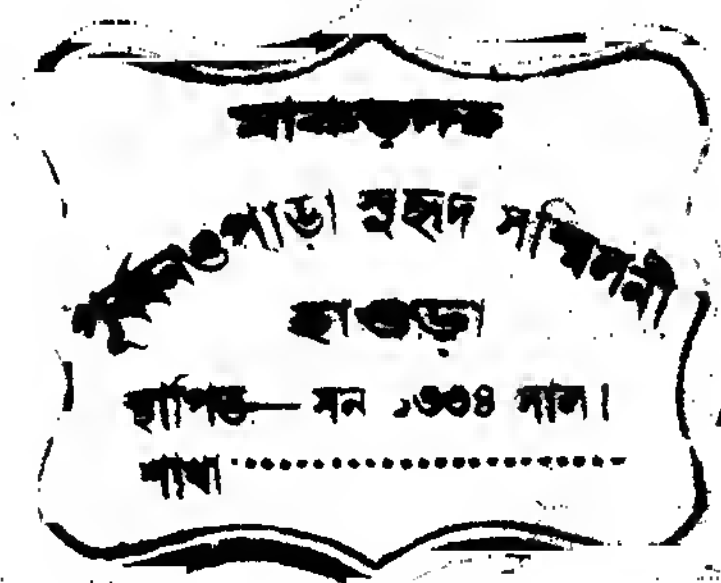 মাকড়দহ
পাড়া সুহৃদ সম্মিলনী
হাওড়া
স্থাপিত— সন ১৩৩৪ সাল।
শাখা ........................